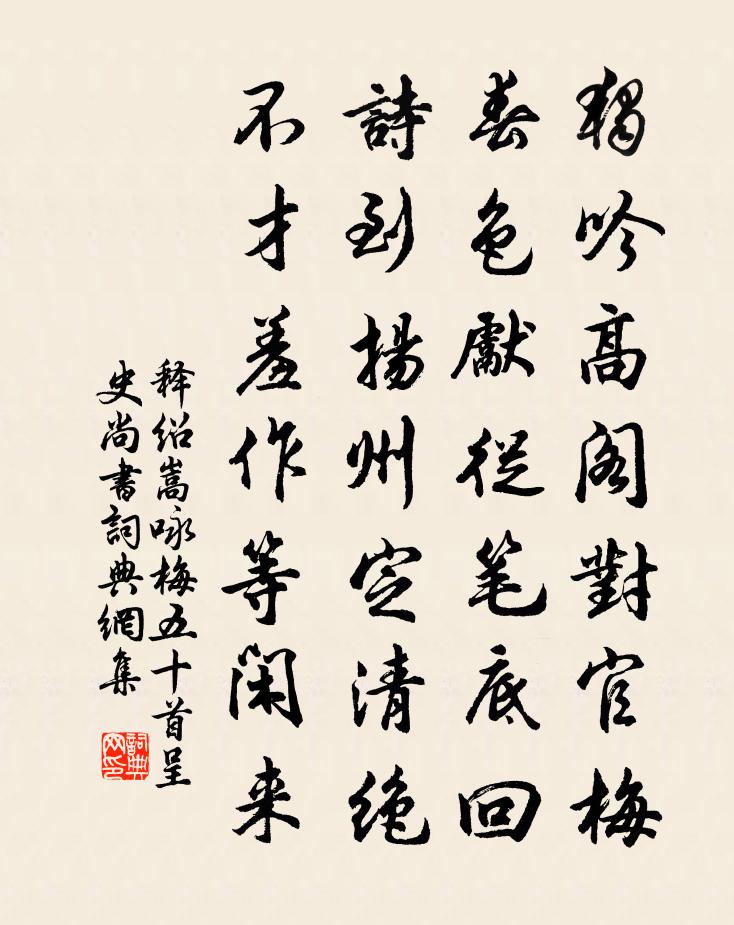 獨吟高阁對官梅
春色獻從笔底回
詩到揚州定清绝
不才羞作等闲来
释绍嵩咏梅五十首呈
史尚書詞典網集
詞典网印